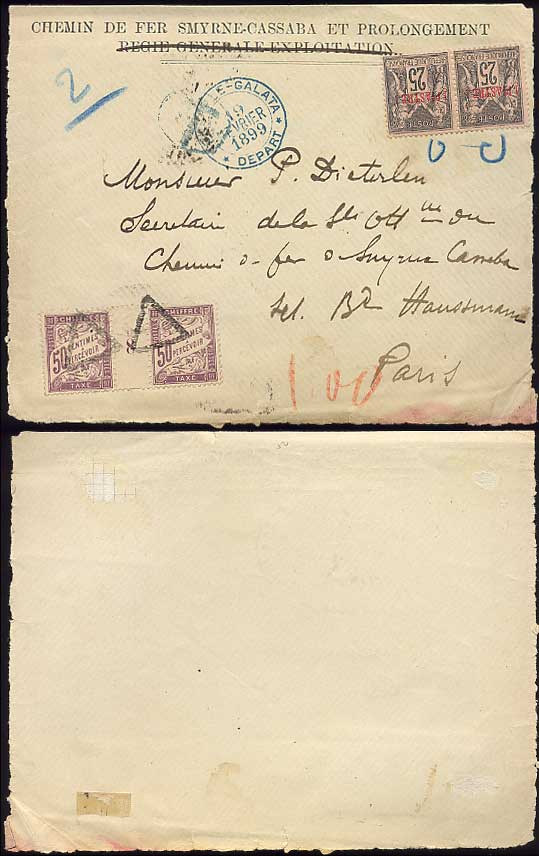 CHEMIN DE FER SMYRNE-CASSABA ET PROLONGEMENT
REGIE GENERALE EXPLOITATION.
2
E-GALATA
19
FÉVRIER
1899
* DEPART *
25
POSTE
25
POSTE
Monsieur P. Dieterlen
Secretaire de la Sté Ott ne du
Chemin d fer d Smyrne Cassaba
Bd Haussmann
Paris
CHIFFRE
50
CENTIMES
PERCEVOIR
TAXE
CHIFFRE
50
PERCEVOIR
TAXE
100